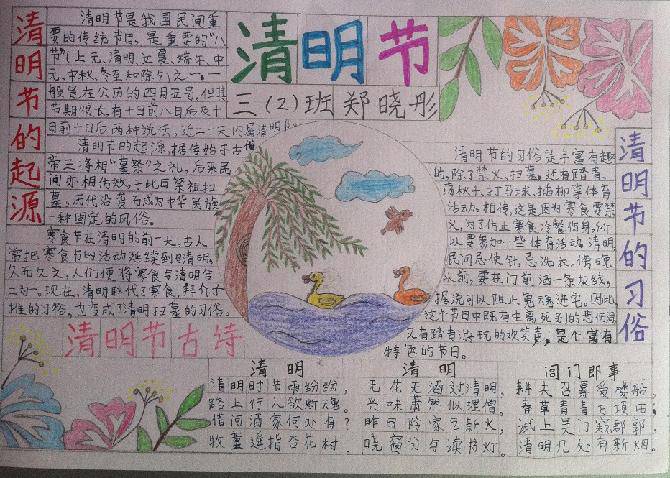 清明节
三(2)班郑晓彤
清明节的起源
清明节是我国民间重
要的传统节日,是重要的"八
节"(上元、清明、立夏、端午、中
元、中秋、冬至和除夕)之一。一
般是在公历的四月五号,但其
节期很长,有十日前八日后及十
日前十日后两种说法,近二十天内属清明
清明节的起源,据传始于古
帝王将相"墓祭"之礼,后来民
间亦相仿效,于此日祭祖扫
墓,历代沿袭而成为中华民族
一种固定的风俗。
寒食节在清明的前一天,古人
常把寒食节的活动延续到清明,
久而久之,人们便将寒食与清明合
二为一。现在,清明取代了寒食
的习俗,也变成了清明扫墓的习俗。
清明节的习俗
清明节的习俗是丰富有趣
的,除了禁火、扫墓,还有踏青、
荡秋千、打马球、插柳等体育
活动。相传,这是因为寒食要禁
火,为了防止寒食冷餐伤身,所
以要参加一些体育活动。清明
民间忌使针,忌洗衣,
前,要在门前洒一条灰线,
据说可以阻止鬼魂进宅。因此,
这个节日中既有生离死别的悲
又有踏青游玩的欢笑声,是个富有
特色的节日。
清明节古诗
清明
清明时节雨纷纷,
路上行人欲断魂。
借问酒家何处有?
牧童遥指杏花村。
清明
无花无酒过清明,
兴味萧然似僧。
昨日邻家乞新火,
晓窗分与读书灯。
阊门即事
耕夫召募爱楼船,
春草青青万顷田;
试上吴门窥郡郭,
清明几处有新烟。